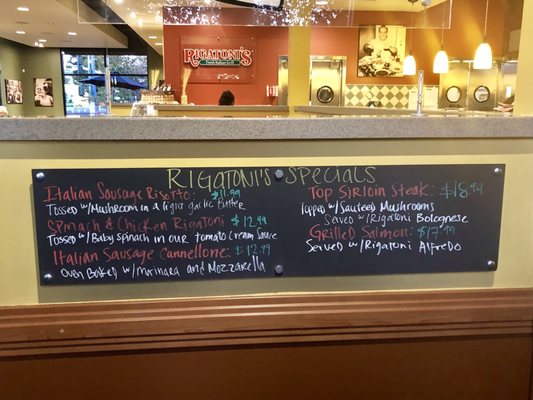 RIGATONI'S
Fresh Italian Grill
RIGATONI'S SPECIALS
Italian Sausage Risotto: $11.99
Tossed w/Mushroom in a light garlic Butter
Spinach & Chicken Rigatoni $12.99
Tossed w/Baby spinach in our tomato Cream Sauce
Italian Sausage Cannellone: $12.99
Oven Baked w/marinara and Mozzarella
Top Sirloin Steak: $18.99
Topped w/Sauteed Mushrooms
Served w/Rigatoni Bolognese
Grilled Salmon: $17.99
Served w/Rigatoni Alfredo